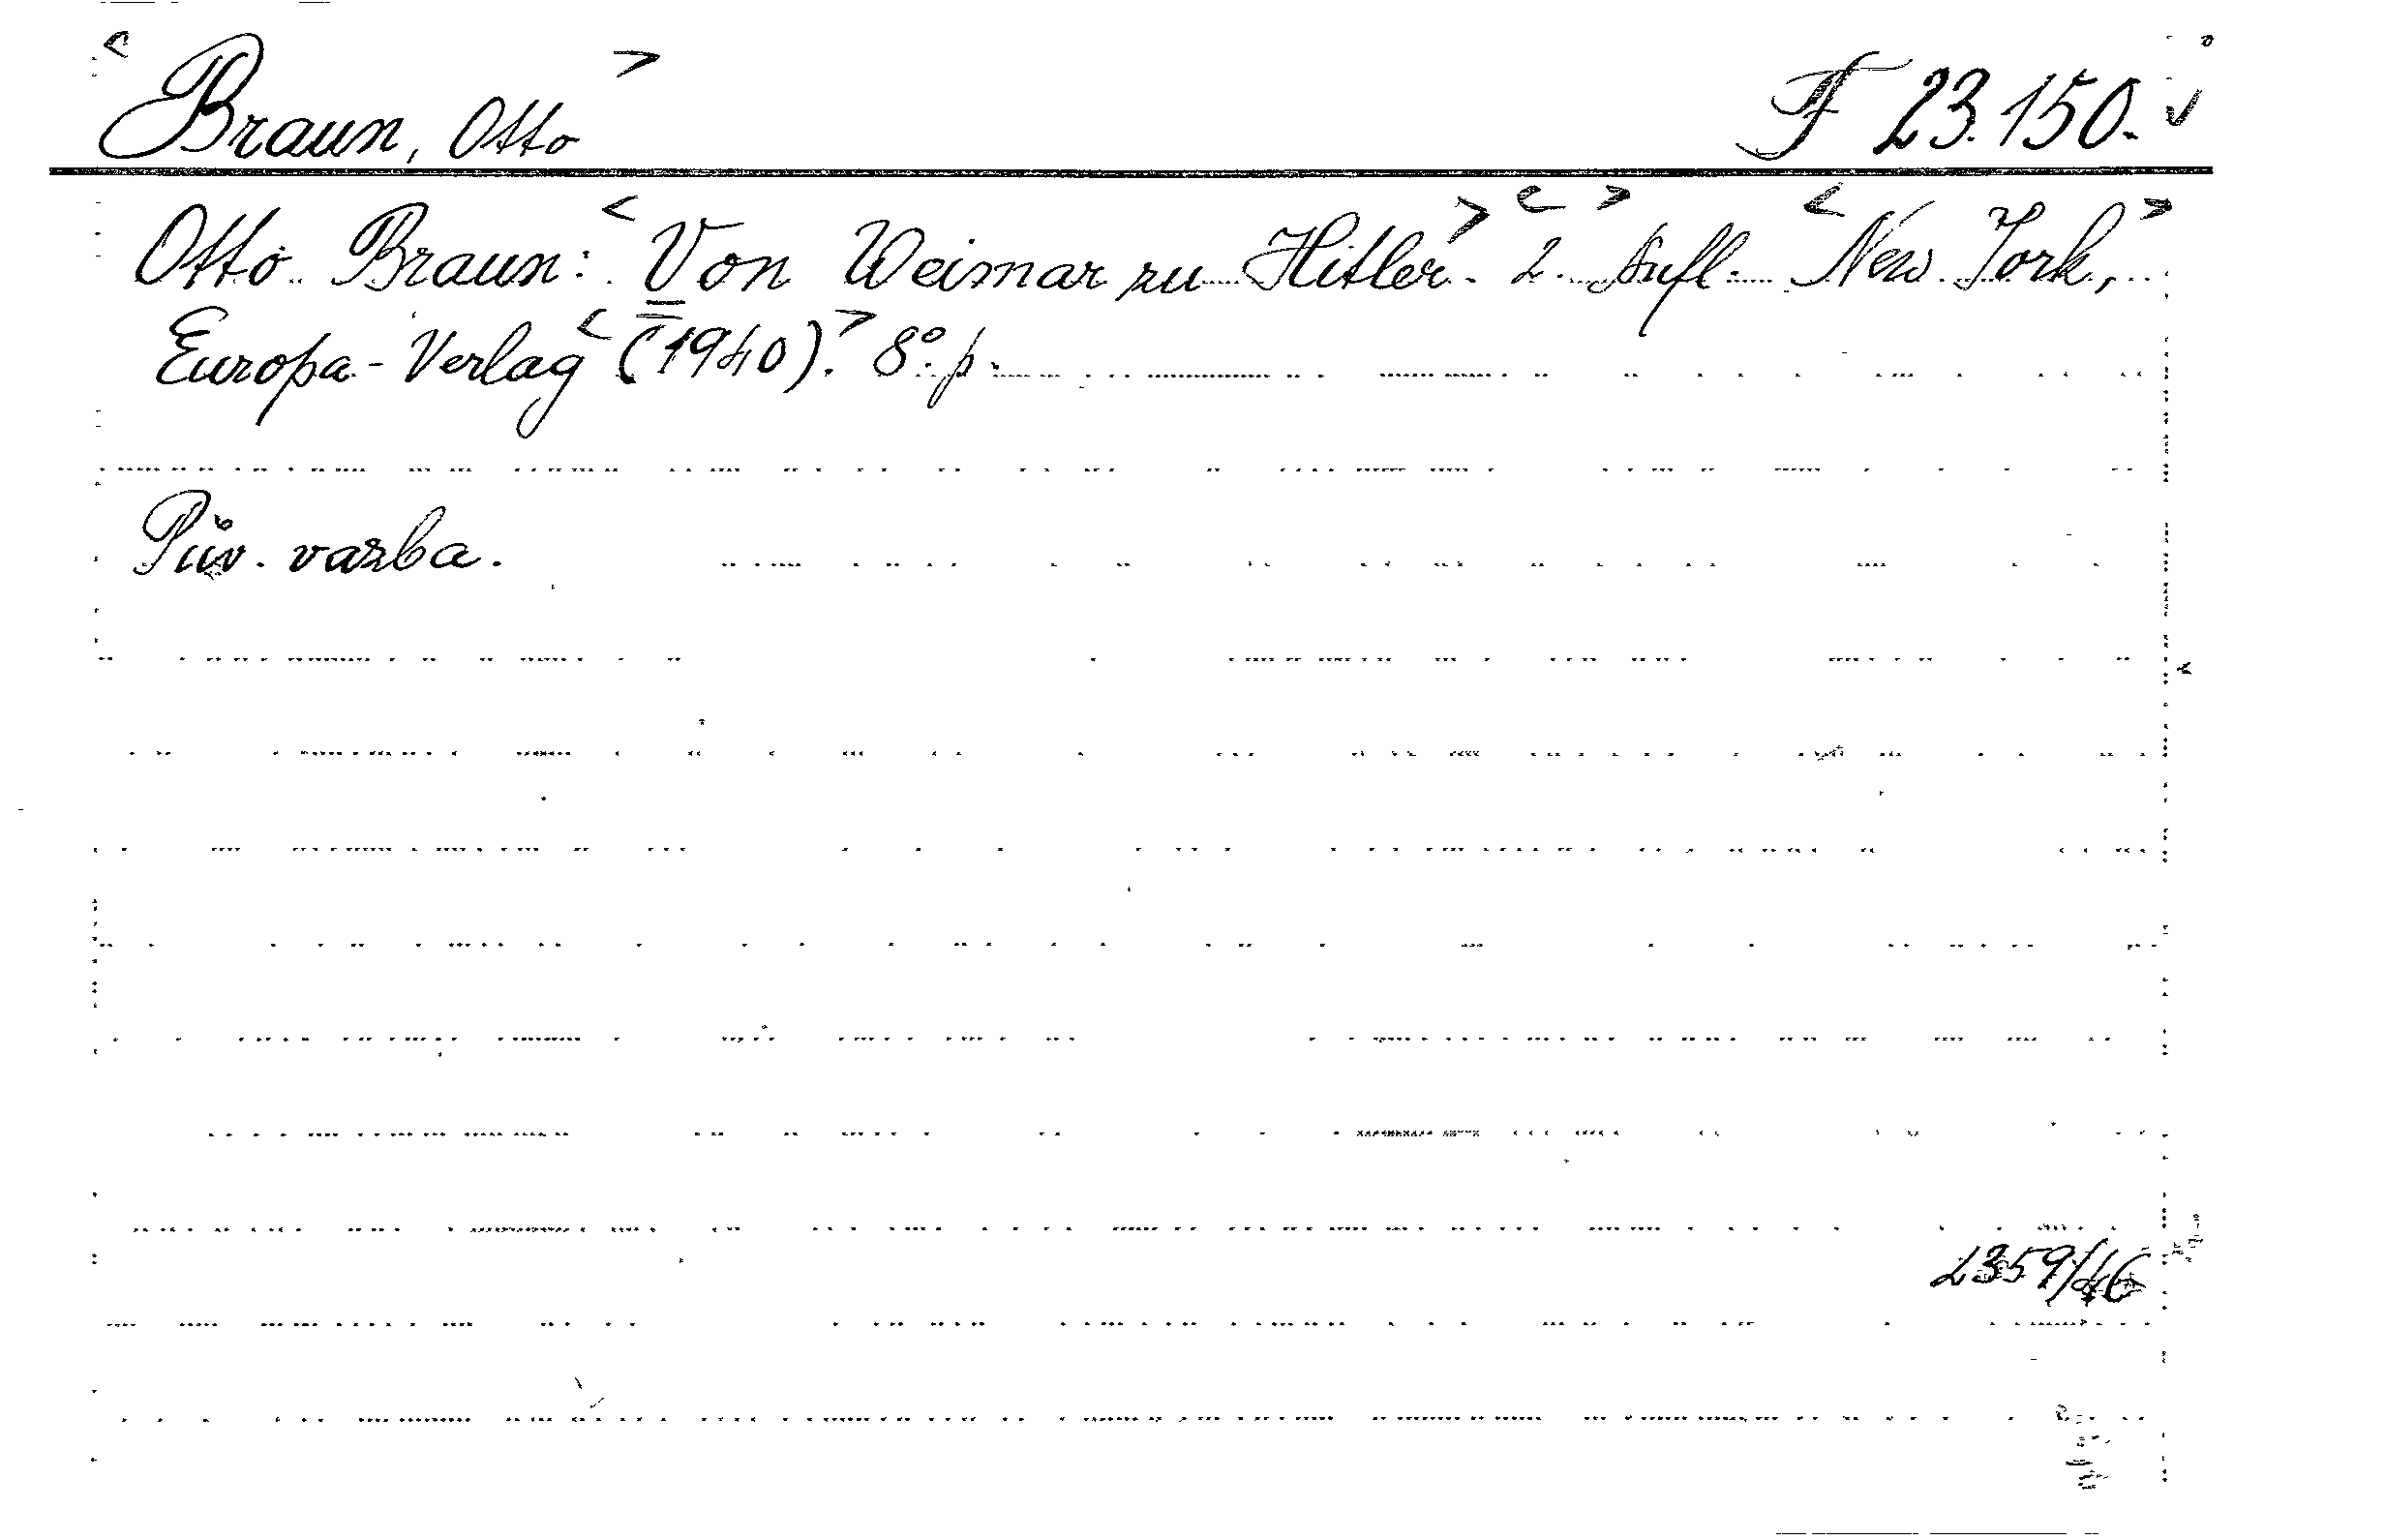 <Braun, Otto> F 23.150.
Otto Braun: <Von Weimar zu Hitler>. <2.> Aufl. <New York,>
Europa-Verlag <(1940).> 8°. p.
Pův. vazba.
2359/46